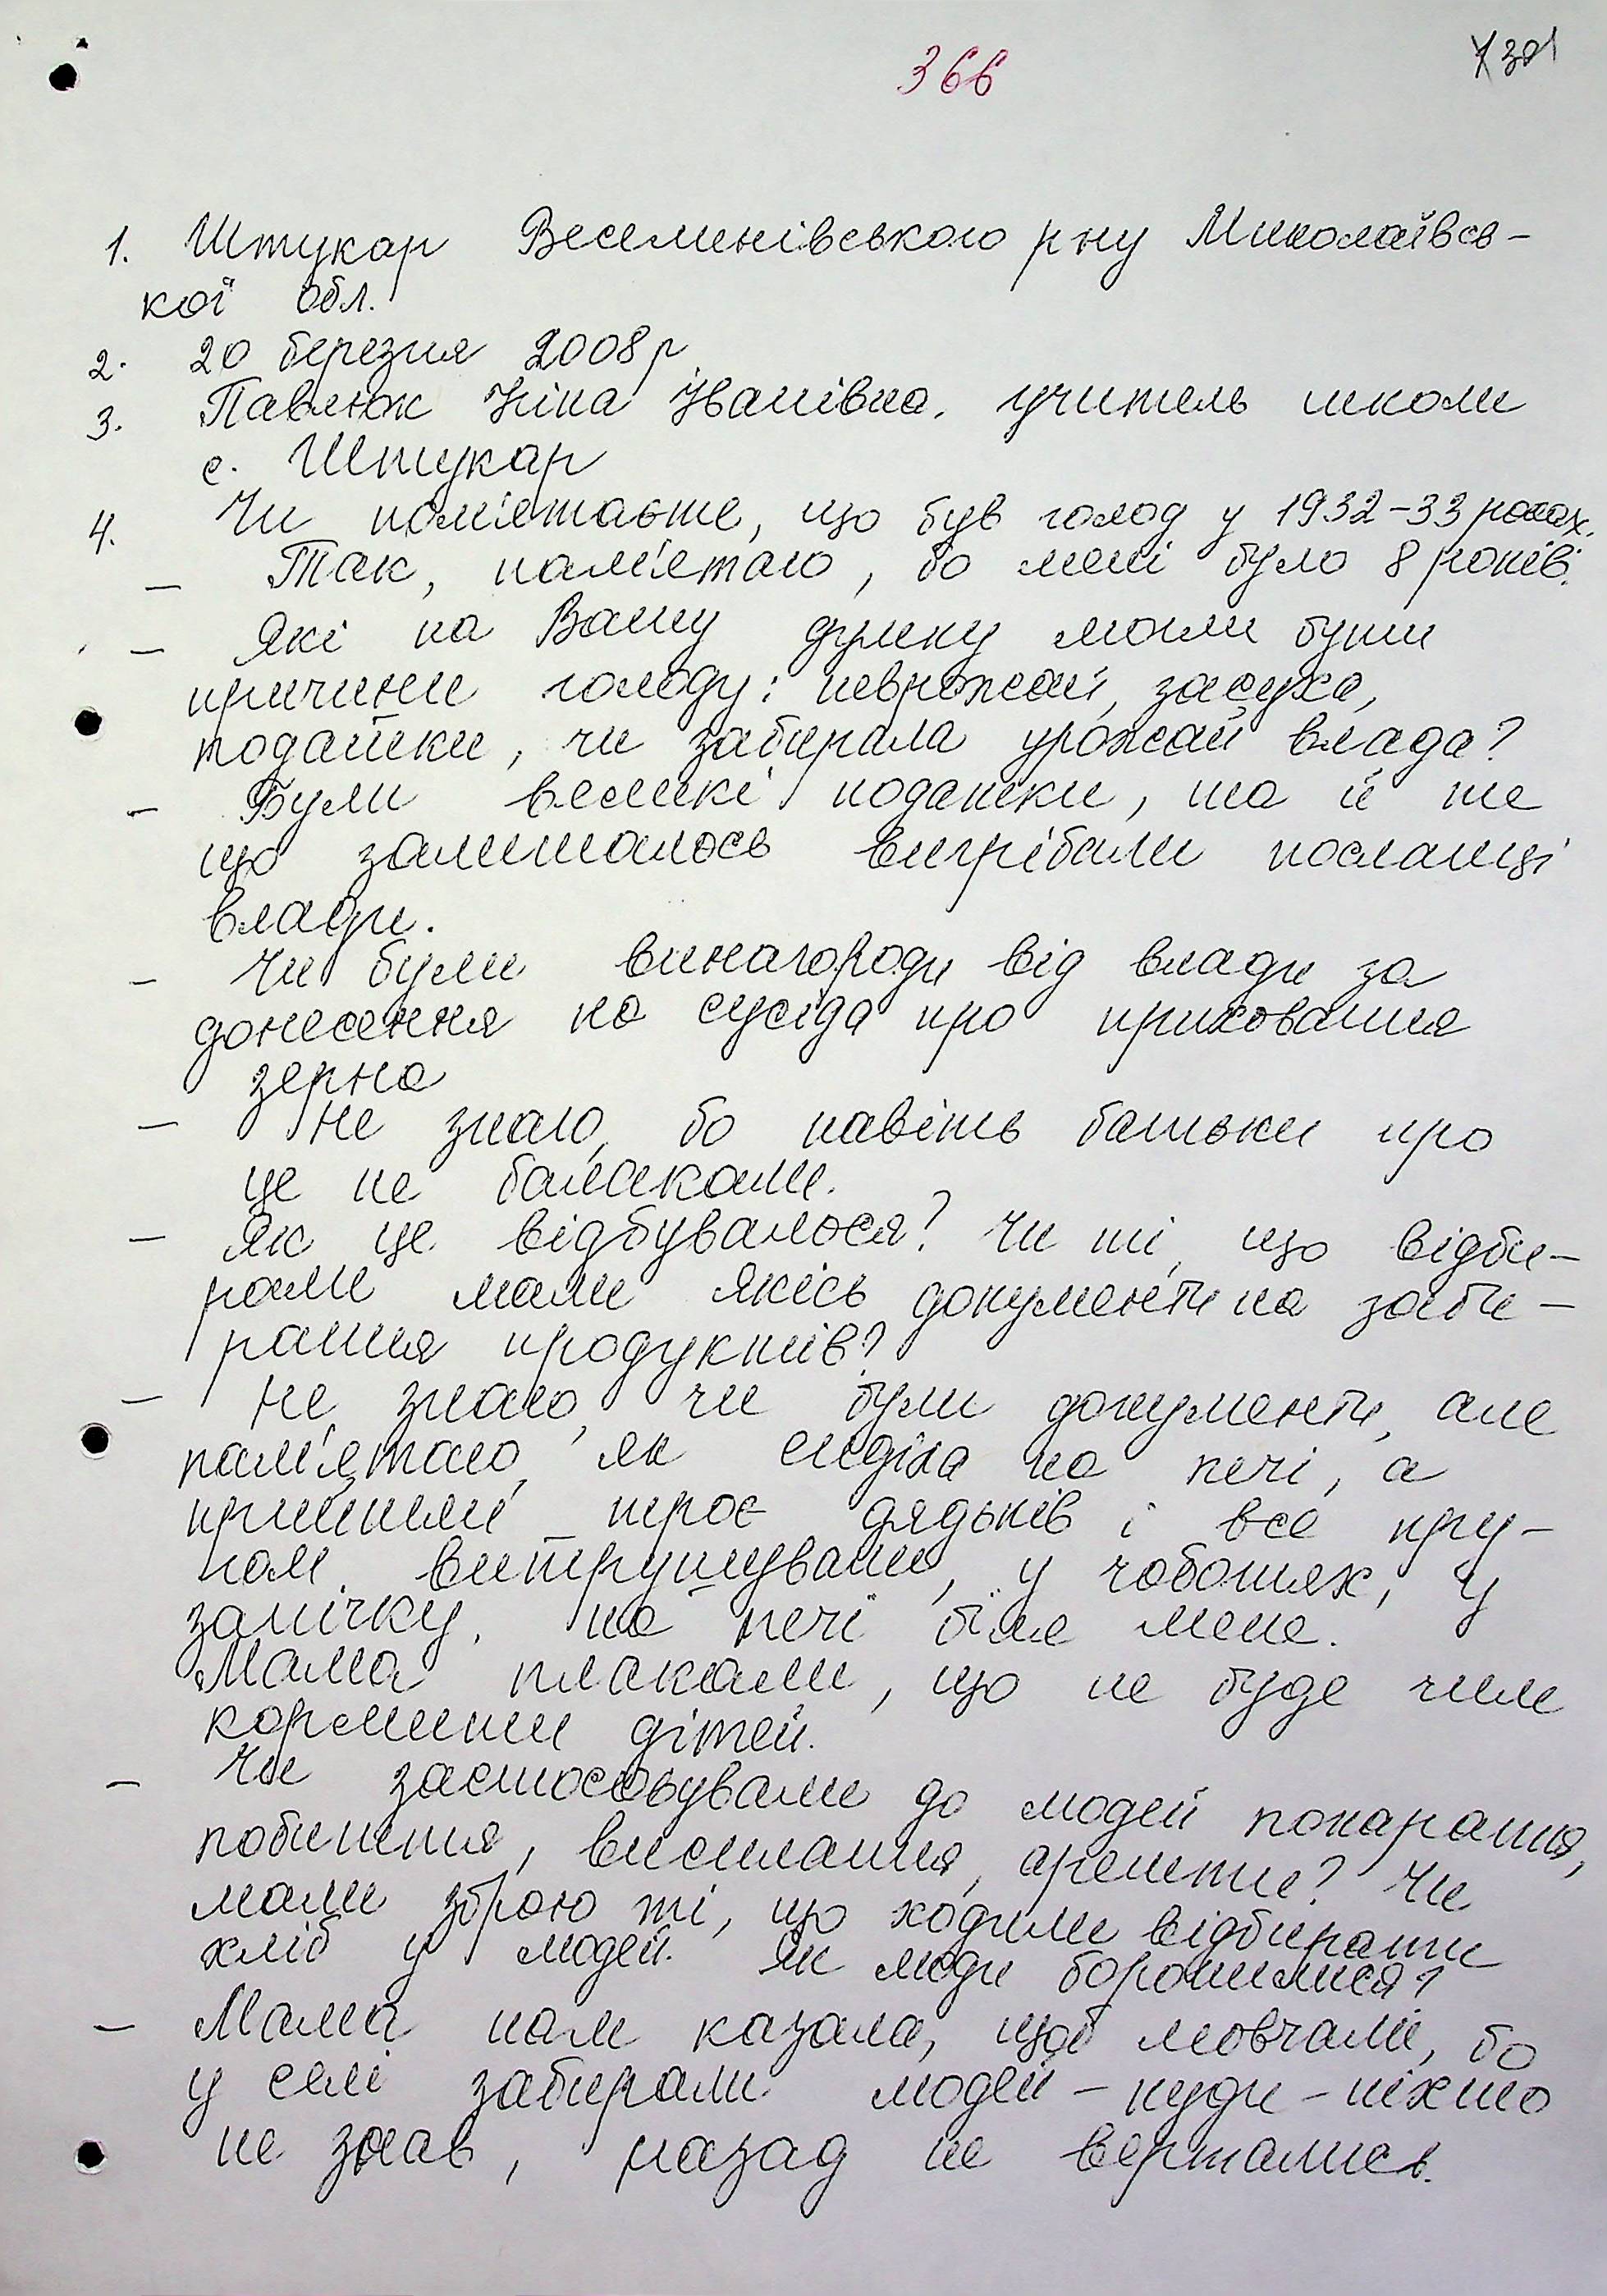 366
1. Штукар Веселинівського р ну Миколаївсь-
кої обл.
2. 20 березня 2008 р.
3. Павлюк Ніна Іванівна. учитель школи
с. Штукар
4. Чи пам'ятаєте, що був голод у 1932-33 роках.
– Так, пам'ятаю, бо мені було 8 років.
– Які на Вашу думку могли бути
причини голоду: неврожай, засуха,
податки, чи забирала урожай влада?
– Були великі податки, та й те
що залишалось вигрібали посланці
влади.
– Чи були винагороди від влади за
донесення на сусіда про приховання
зерна
– Не знаю, бо навіть батьки про
це не балакали.
– Як це відбувалося? Чи ті, що відби-
рали мали якісь документи на заби-
рання продуктів?
– Не знаю, чи були документи, але
пам'ятаю, як сиділа на печі, а
прийшли троє дядьків і все кру-
гом витрушували, у чоботях, у
запічку, на печі біля мене.
Мама плакали, що не буде чим
кормити дітей.
– Чи застосовували до людей покарання,
побиття, висилання, арешти? Чи
мали зброю ті, що ходили відбирати
хліб у людей. Як люди боронилися?
– Мама нам казала, щоб мовчали, бо
у селі забирали людей – куди – ніхто
не знав, назад не вертались.